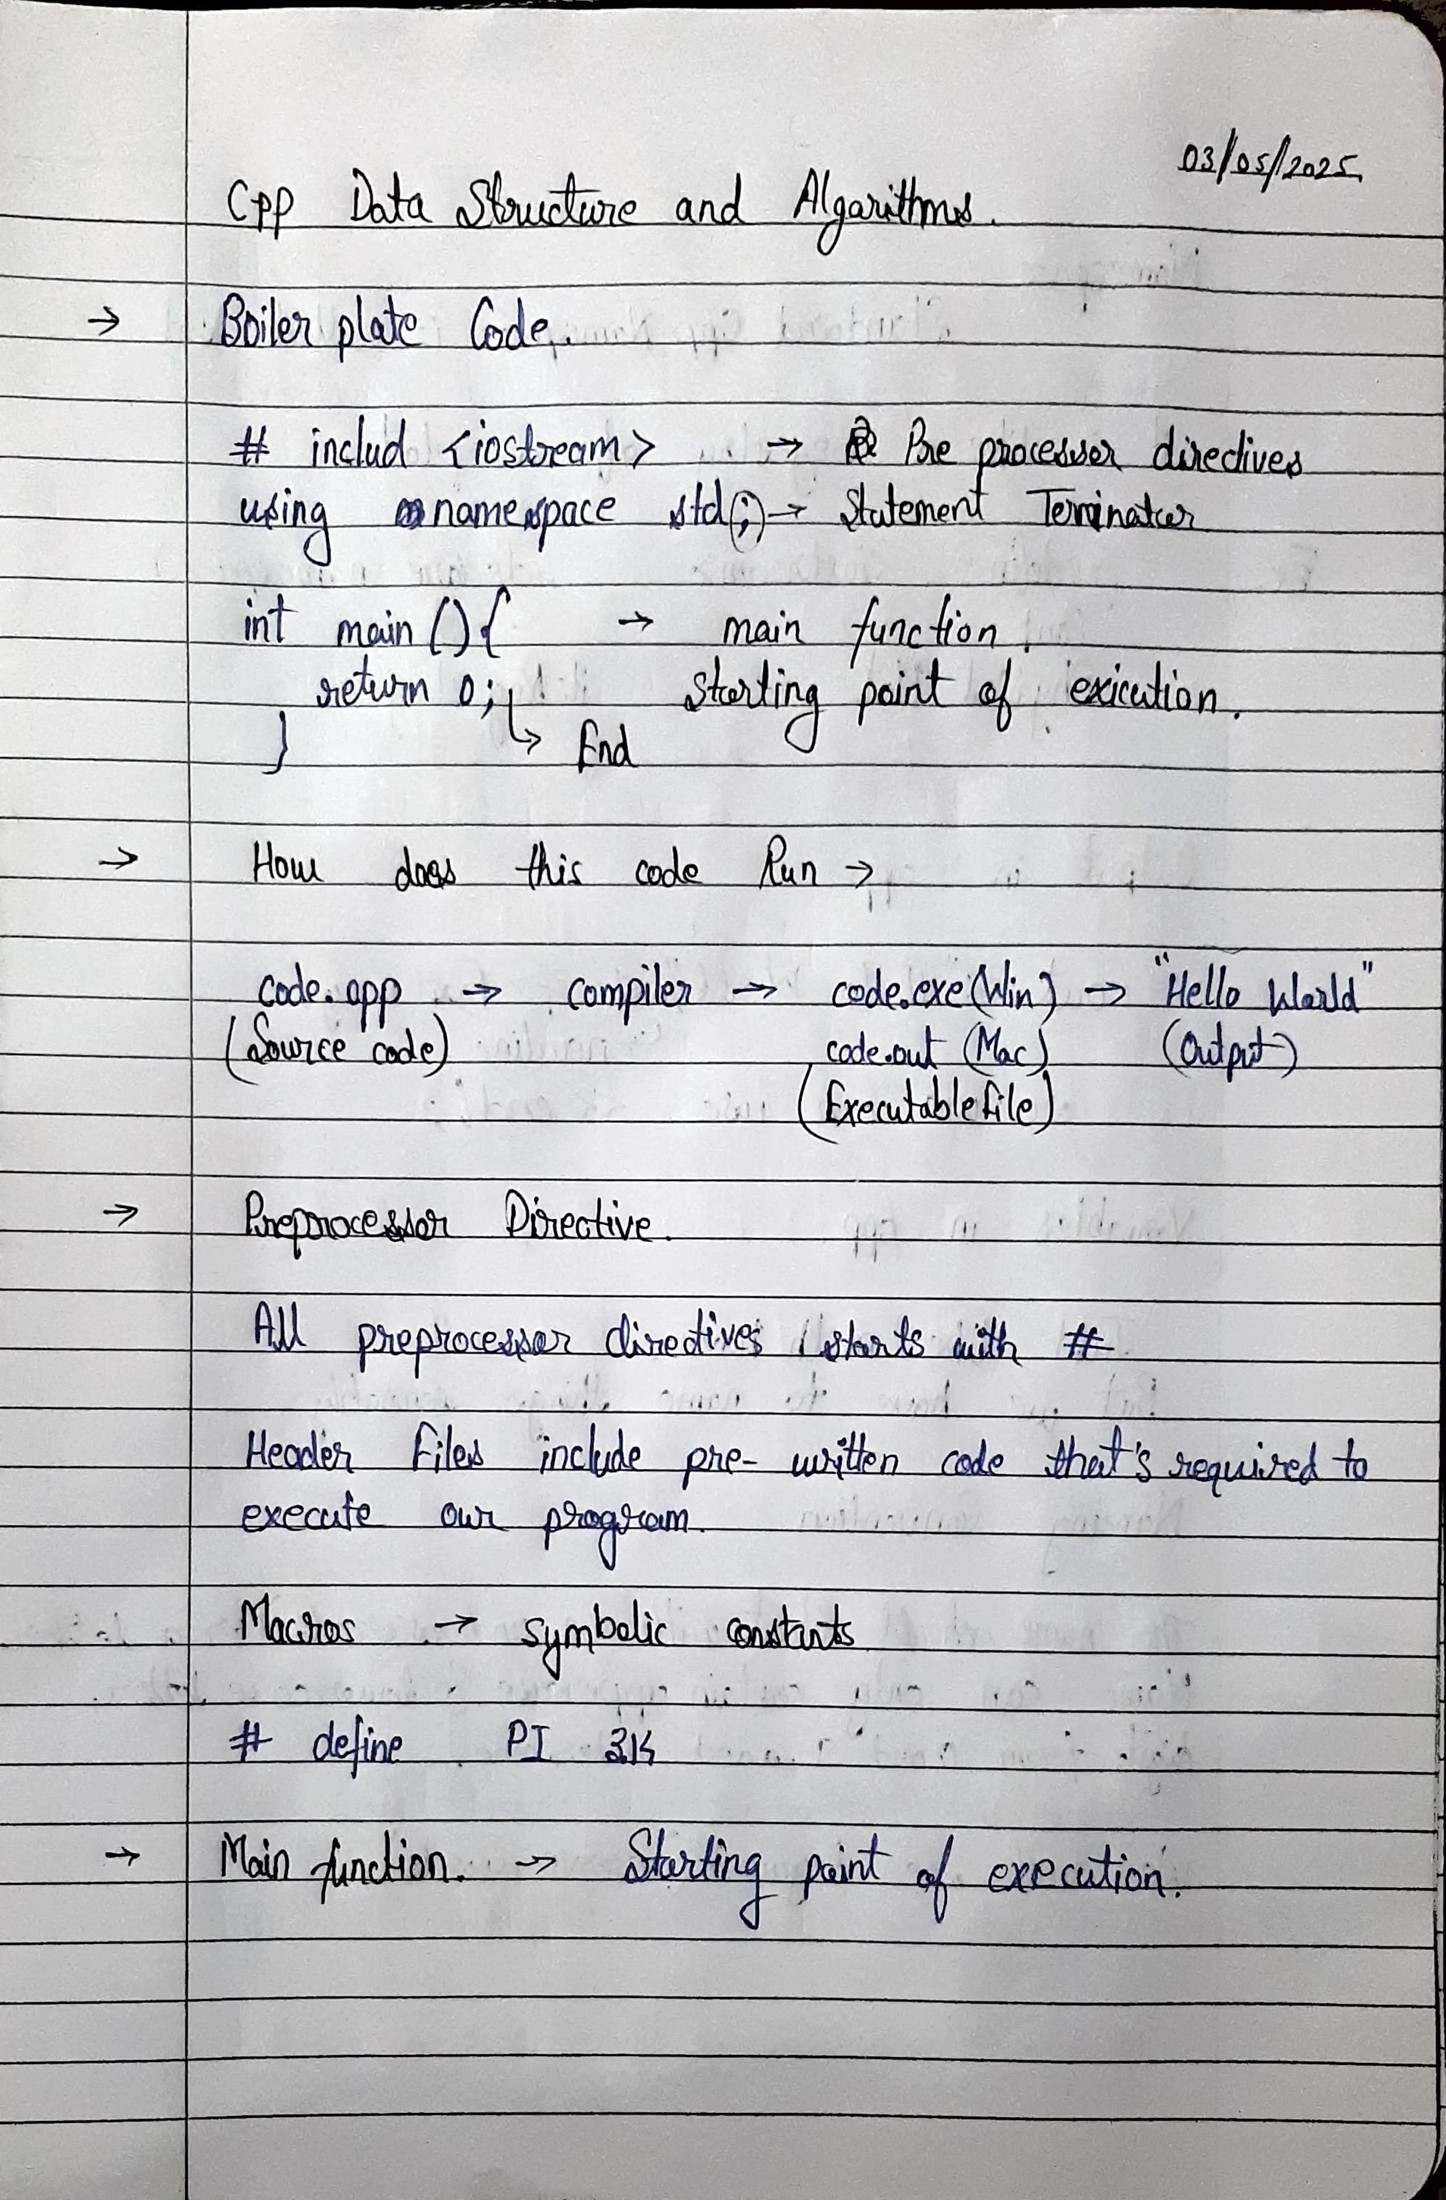 03/05/2025
Cpp Data Structure and Algorithms.
→ Boiler plate Code.
# includ <iostream> → Pre processor directives
using namespace std; → Statement Terminator
int main () { → main function.
return 0; Starting point of exicution.
} ↳ End
→ How does this code Run →
code.cpp → compiler → code.exe (Win) → "Hello World"
(Source code) code.out (Mac) (Output)
(Executable file)
→ Preprocessor Directive.
All preprocessor directives starts with #
Header Files include pre-written code that's required to
execute our program.
Macros → symbolic constants
# define PI 3.14
→ Main function. → Starting point of execution.